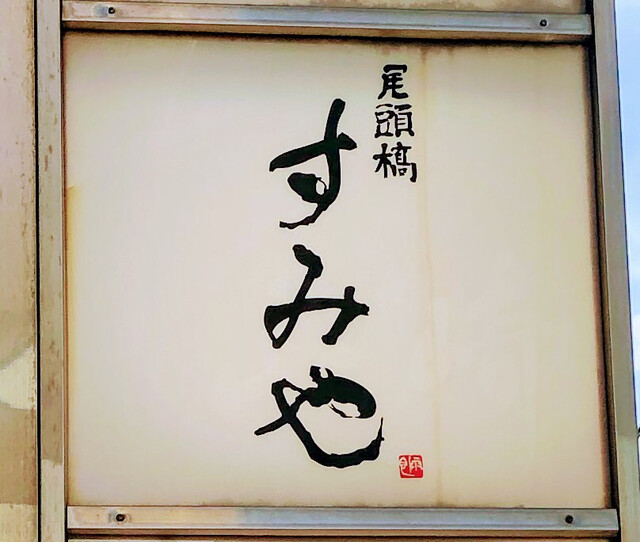 尾頭橋
すみや